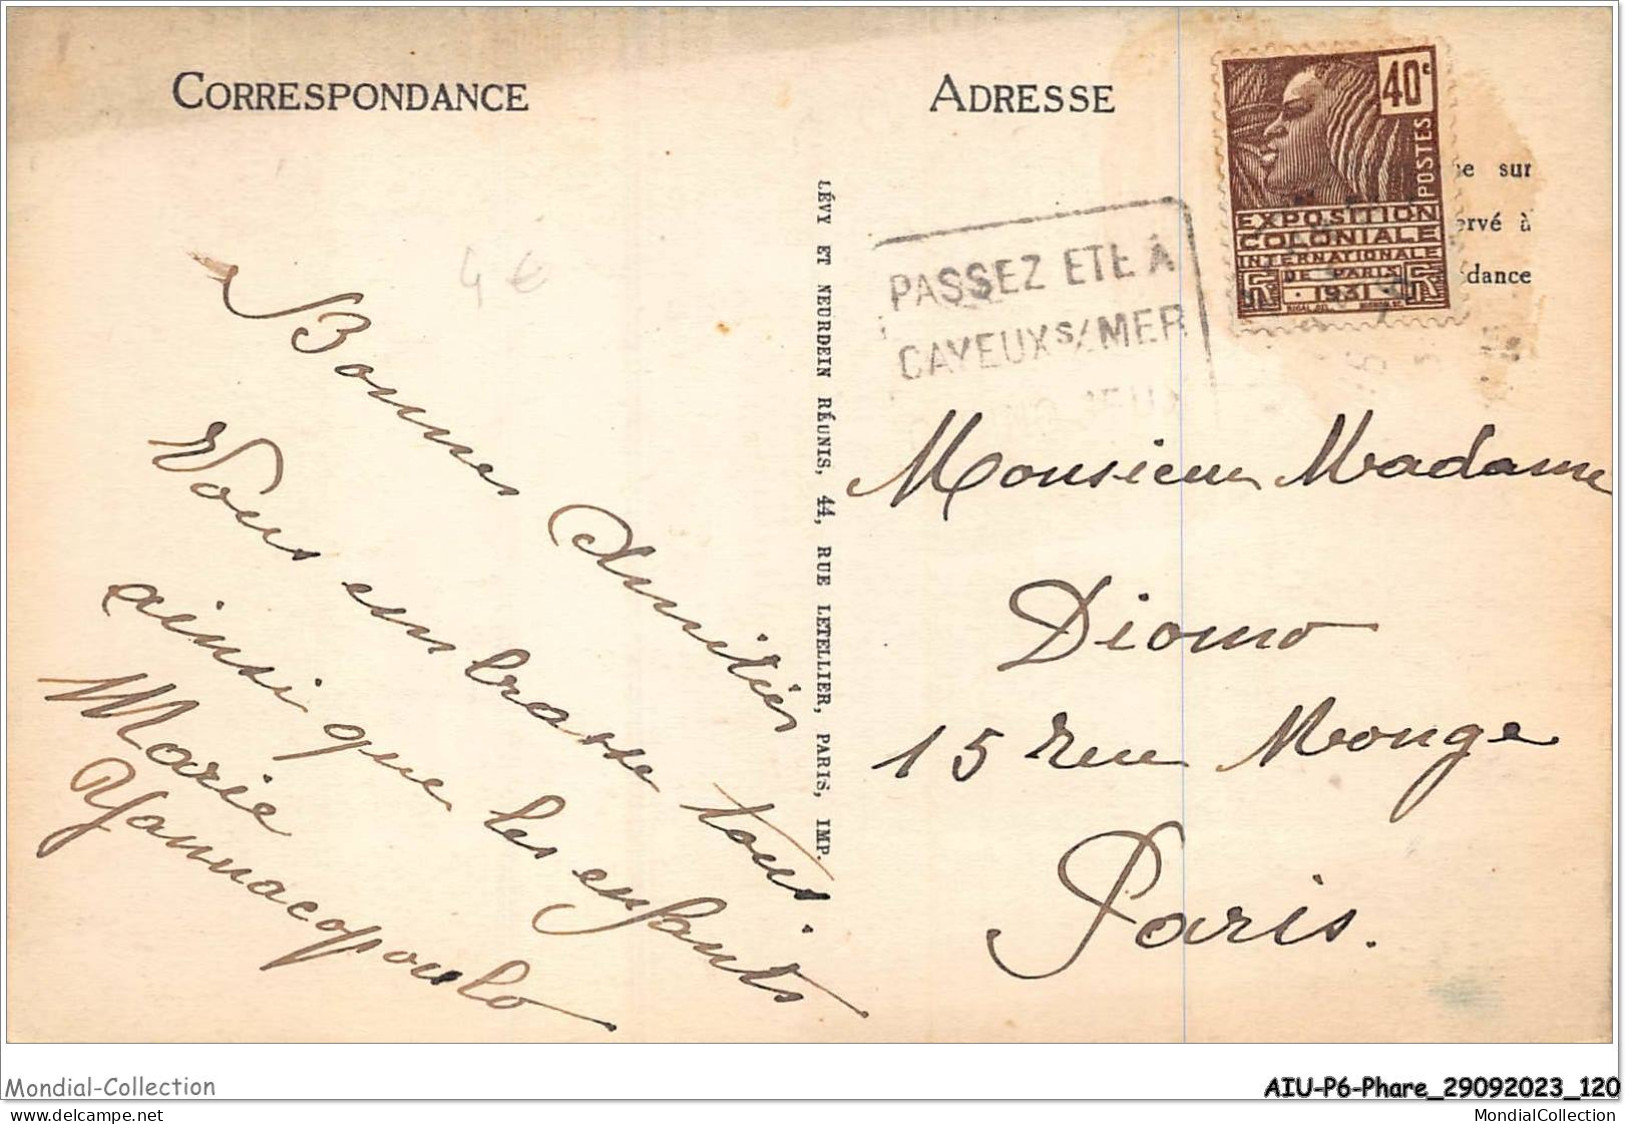 CORRESPONDANCE
4 €
Bonnes Amitiés
Vous embrasse tous.
ainsi que les enfants
Marie
Yannacopoulo
LÉVY ET NEURDEIN RÉUNIS, 44, RUE LETELLIER, PARIS, IMP.
ADRESSE
40c
POSTES
EXPOSITION
COLONIALE
INTERNATIONALE
DE PARIS
1931
sur
ervé à
dance
PASSEZ ETE A
CAYEUX S/MER
Monsieur Madame
Diomo
15 rue Monge
Paris.
Mondial-Collection
AIU-P6-Phare_29092023_120
www.delcampe.net
MondialCollection